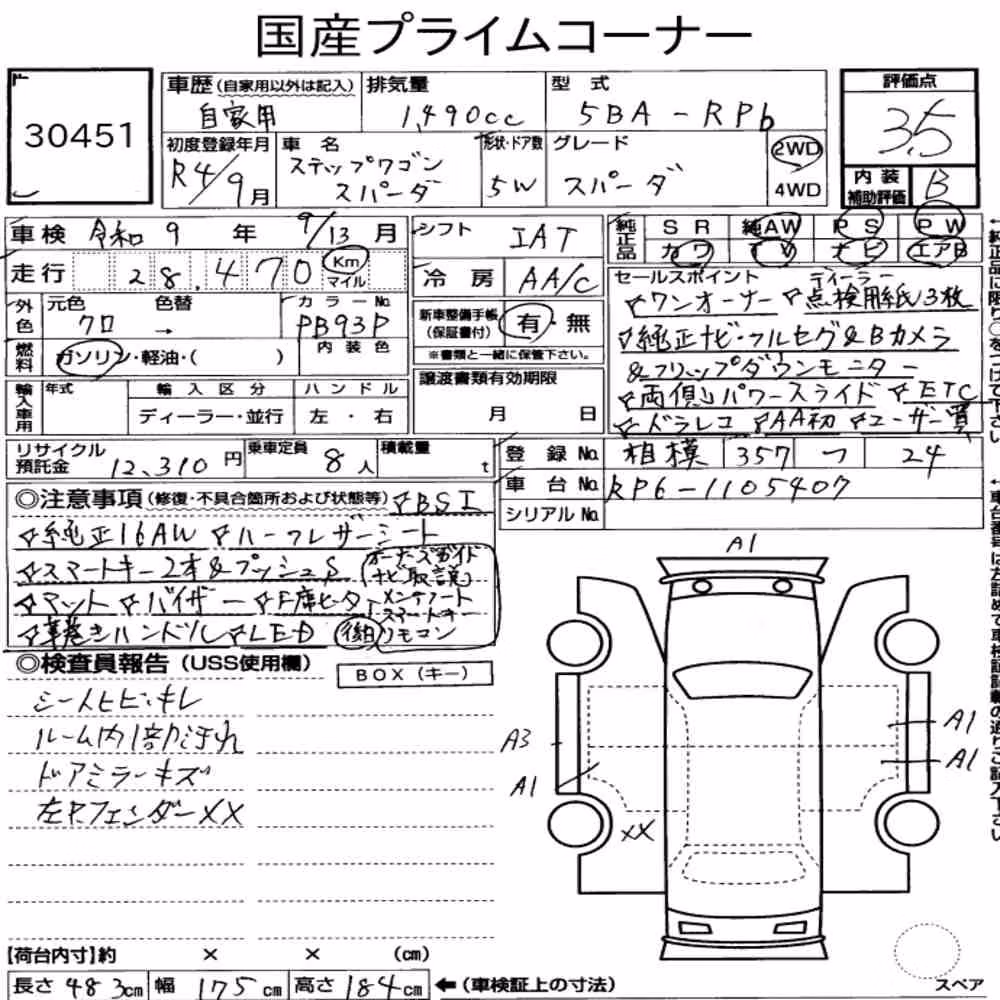 国産プライムコーナー
30451
車歴(自家用以外は記入) 排気量 型式 評価点
自家用 1,490cc 5BA-RP6 3.5
初度登録年月 車名 形状・ドア数 グレード 2WD
R4/9月 ステップワゴン スパーダ 5W スパーダ 4WD
内装補助評価 B
車検 令和 9 年 9/13 月 シフト IAT 純正品 SR 純AW PS PW
カワ TV ナビ エアB
走行 28,470 Km マイル 冷房 AA/C セールスポイント
外色 元色 色替 カラーNo.
クロ → PB93P
内装色
新車整備手帳(保証書付) 有・無
※書類と一緒に保管下さい。
☆ワンオーナー ☆ディーラー点検用紙3枚
☆純正ナビ・フルセグ&Bカメラ
&フリップダウンモニター
☆両側パワースライド ☆ETC
☆ドラレコ ☆AA初 ☆ユーザー買
燃料 ガソリン・軽油・( )
譲渡書類有効期限
月 日
輸入車用 年式 輸入区分 ハンドル
ディーラー・並行 左・右
リサイクル預託金 12,310円 乗車定員 8人 積載量 t
登録No. 相模 357 つ 24
車台No. RP6-1105407
シリアルNo.
◎注意事項(修復・不具合箇所および状態等) ☆BSI
☆純正16AW ☆ハーフレザーシート
☆スマートキー2本&プッシュS
☆マット ☆バイザー ☆F席ヒーター
☆革巻きハンドル ☆LED
後日 オーナーズガイド ナビ取説 メンテノート スマートキー リモコン
◎検査員報告(USS使用欄) BOX(キー)
シートヒビ・キレ
ルーム内1部汚れ
ドアミラーキズ
左Rフェンダー××
A1
A3
A1
A1
A1
××
【荷台内寸】約 × × (cm)
長さ 483cm 幅 175cm 高さ 184cm ←(車検証上の寸法)
スペア
↑純正品に限り○をつけて下さい